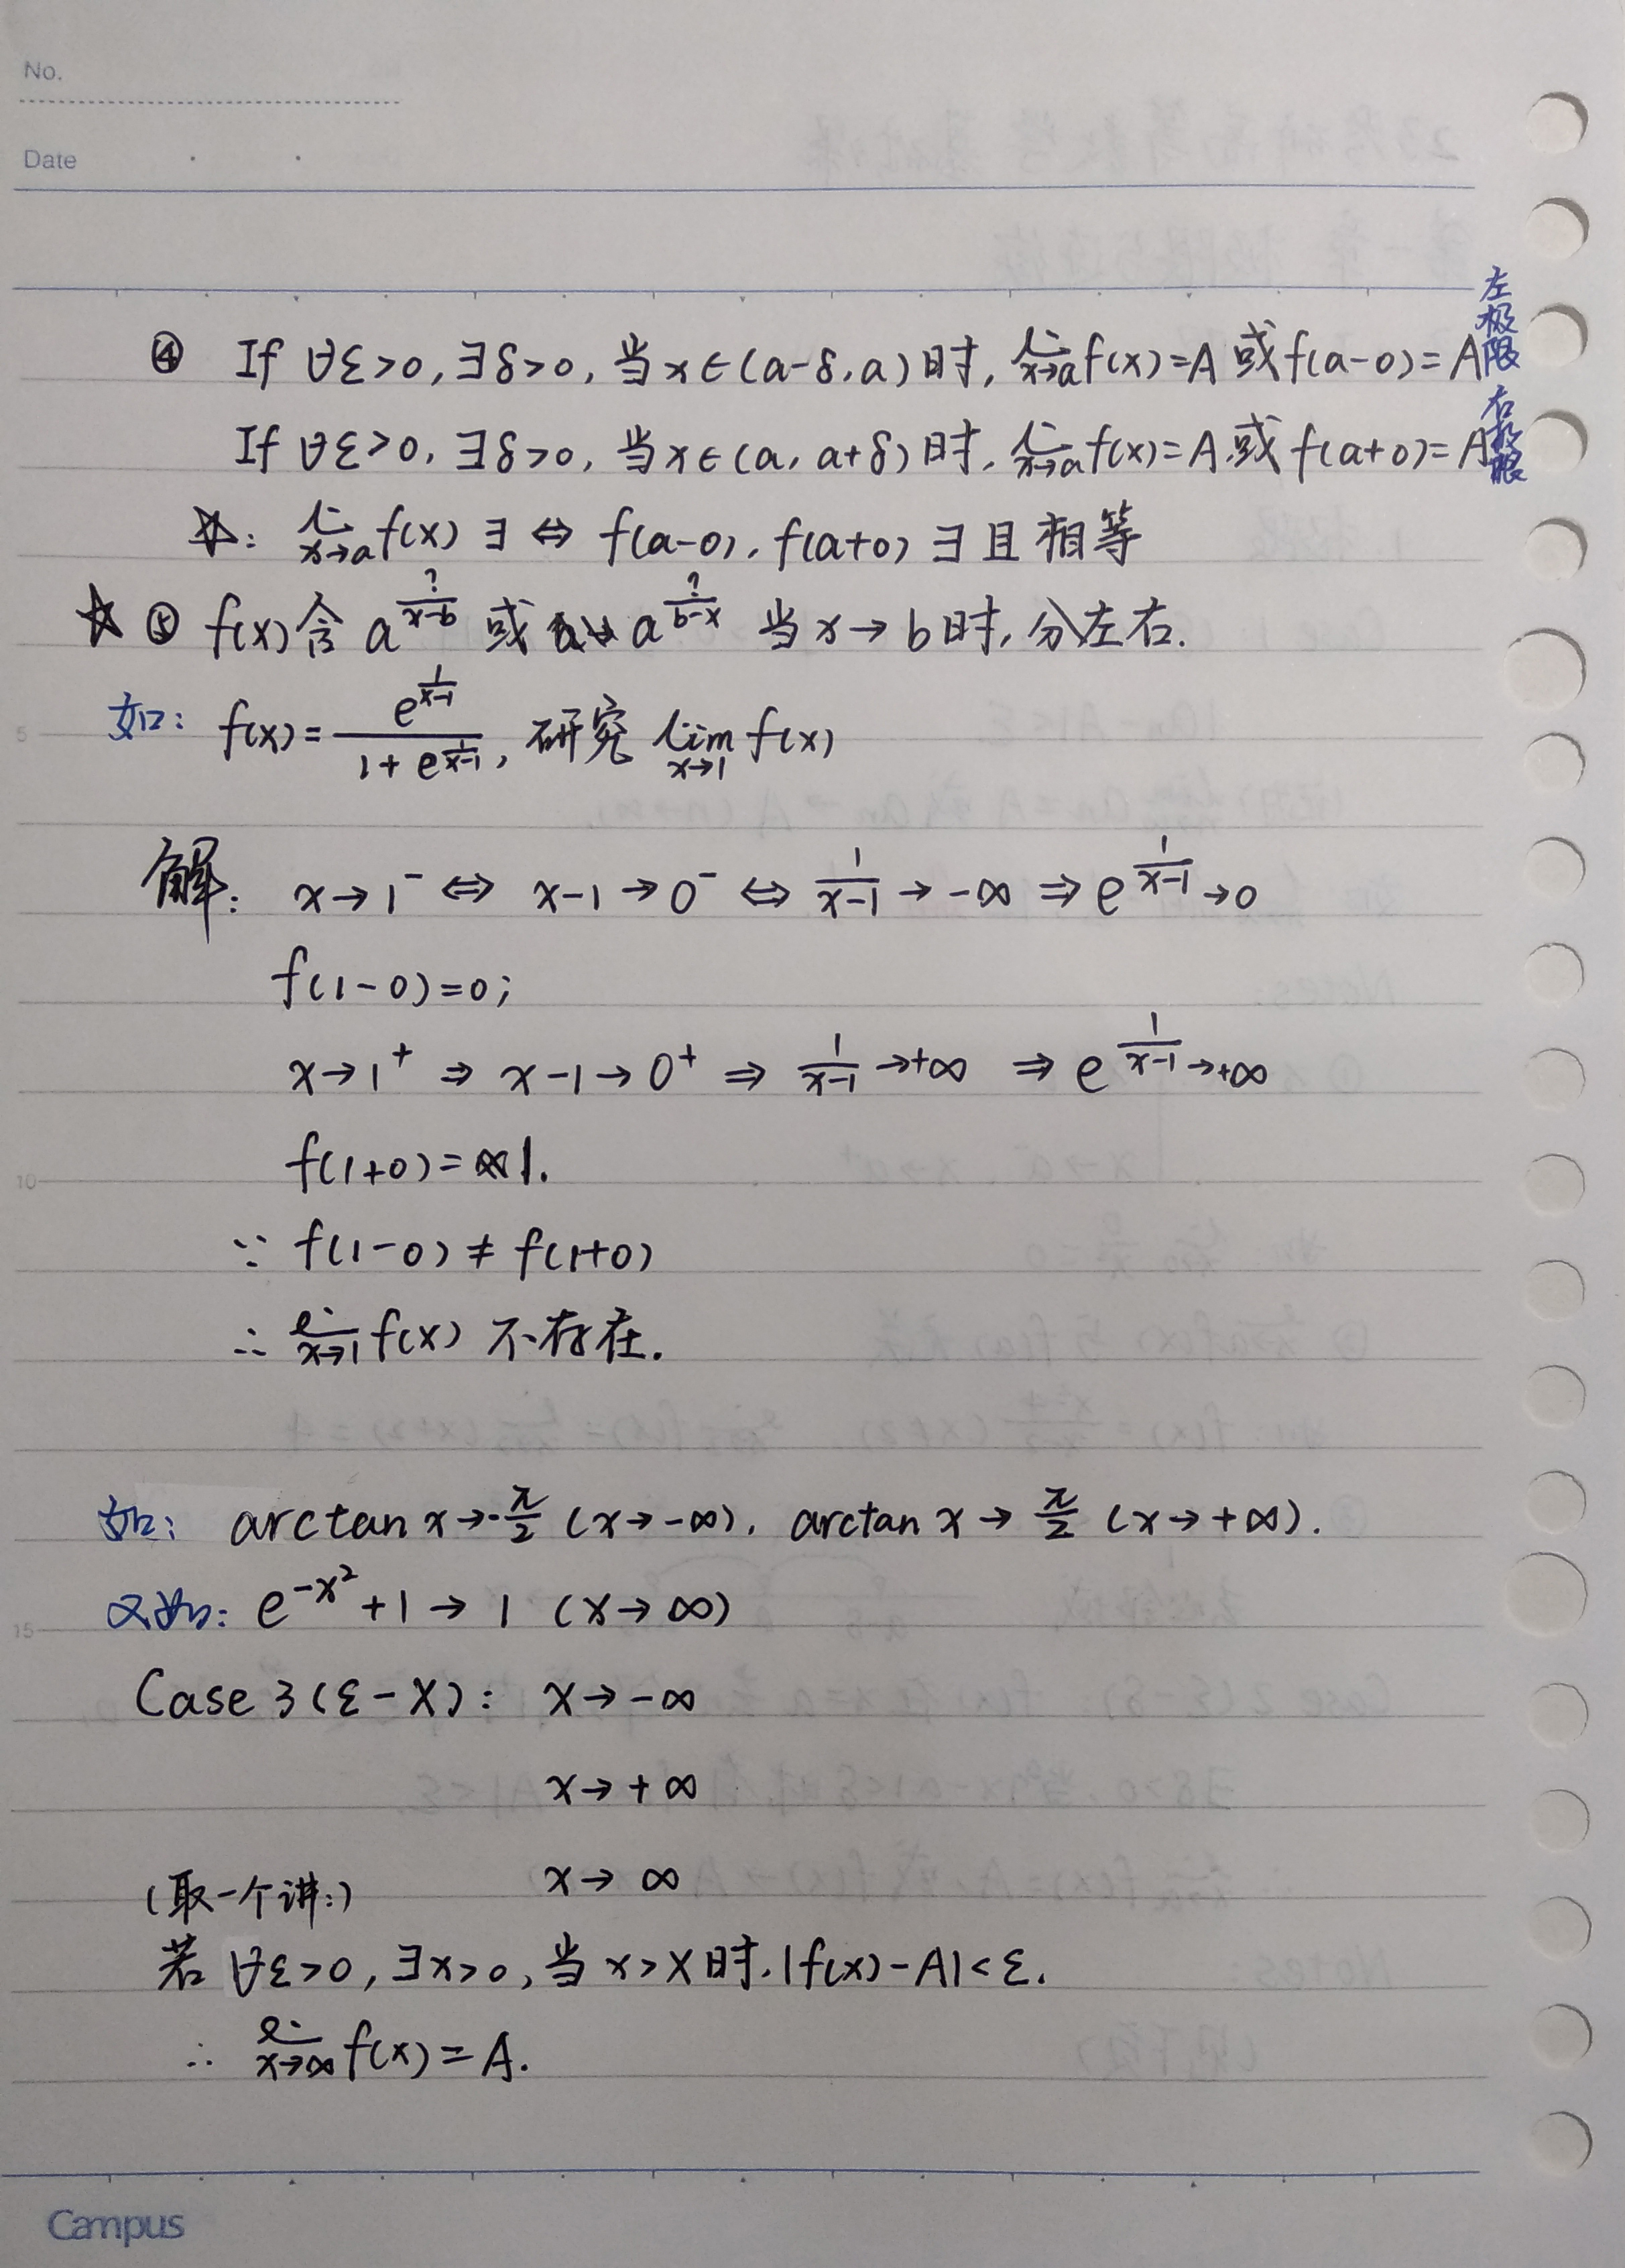 No.
Date
④ If ∀ε>0, ∃δ>0, 当x∈(a-δ, a)时, lim_{x→a} f(x)=A 或f(a-0)=A 左极限
If ∀ε>0, ∃δ>0, 当x∈(a, a+δ)时, lim_{x→a} f(x)=A 或 f(a+0)=A 右极限
☆: lim_{x→a} f(x) ∃ ⇔ f(a-0), f(a+0) ∃ 且相等
☆ ⑤ f(x)含 a^{?/(x-b)} 或 a^{?/(b-x)} 当x→b时, 分左右.
如: f(x)=e^{1/(x-1)}/(1+e^{1/(x-1)}), 研究 lim_{x→1} f(x)
解: x→1⁻ ⇔ x-1→0⁻ ⇔ 1/(x-1)→-∞ ⇒ e^{1/(x-1)}→0
f(1-0)=0;
x→1⁺ ⇒ x-1→0⁺ ⇒ 1/(x-1)→+∞ ⇒ e^{1/(x-1)}→+∞
f(1+0)=1.
∵ f(1-0)≠f(1+0)
∴ lim_{x→1} f(x) 不存在.
如: arctan x→-π/2 (x→-∞). arctan x→π/2 (x→+∞).
又如: e^{-x²}+1→1 (x→∞)
Case 3(ε-X): x→-∞
x→+∞
x→∞
(取一个讲:)
若 ∀ε>0, ∃x>0, 当x>X时. |f(x)-A|<ε.
∴ lim_{x→∞} f(x)=A.
5
10
15
Campus